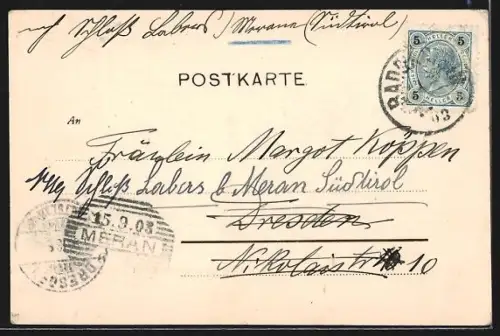 Schloß Labers / Merane (Südtirol)
5 5
HELLER HELLER
5 5
03
POSTKARTE
An
Fräulein Margot Köppen
Schloß Labers b Meran Südtirol
15.9.03
MERAN
Dresden
Nikolaistr 10